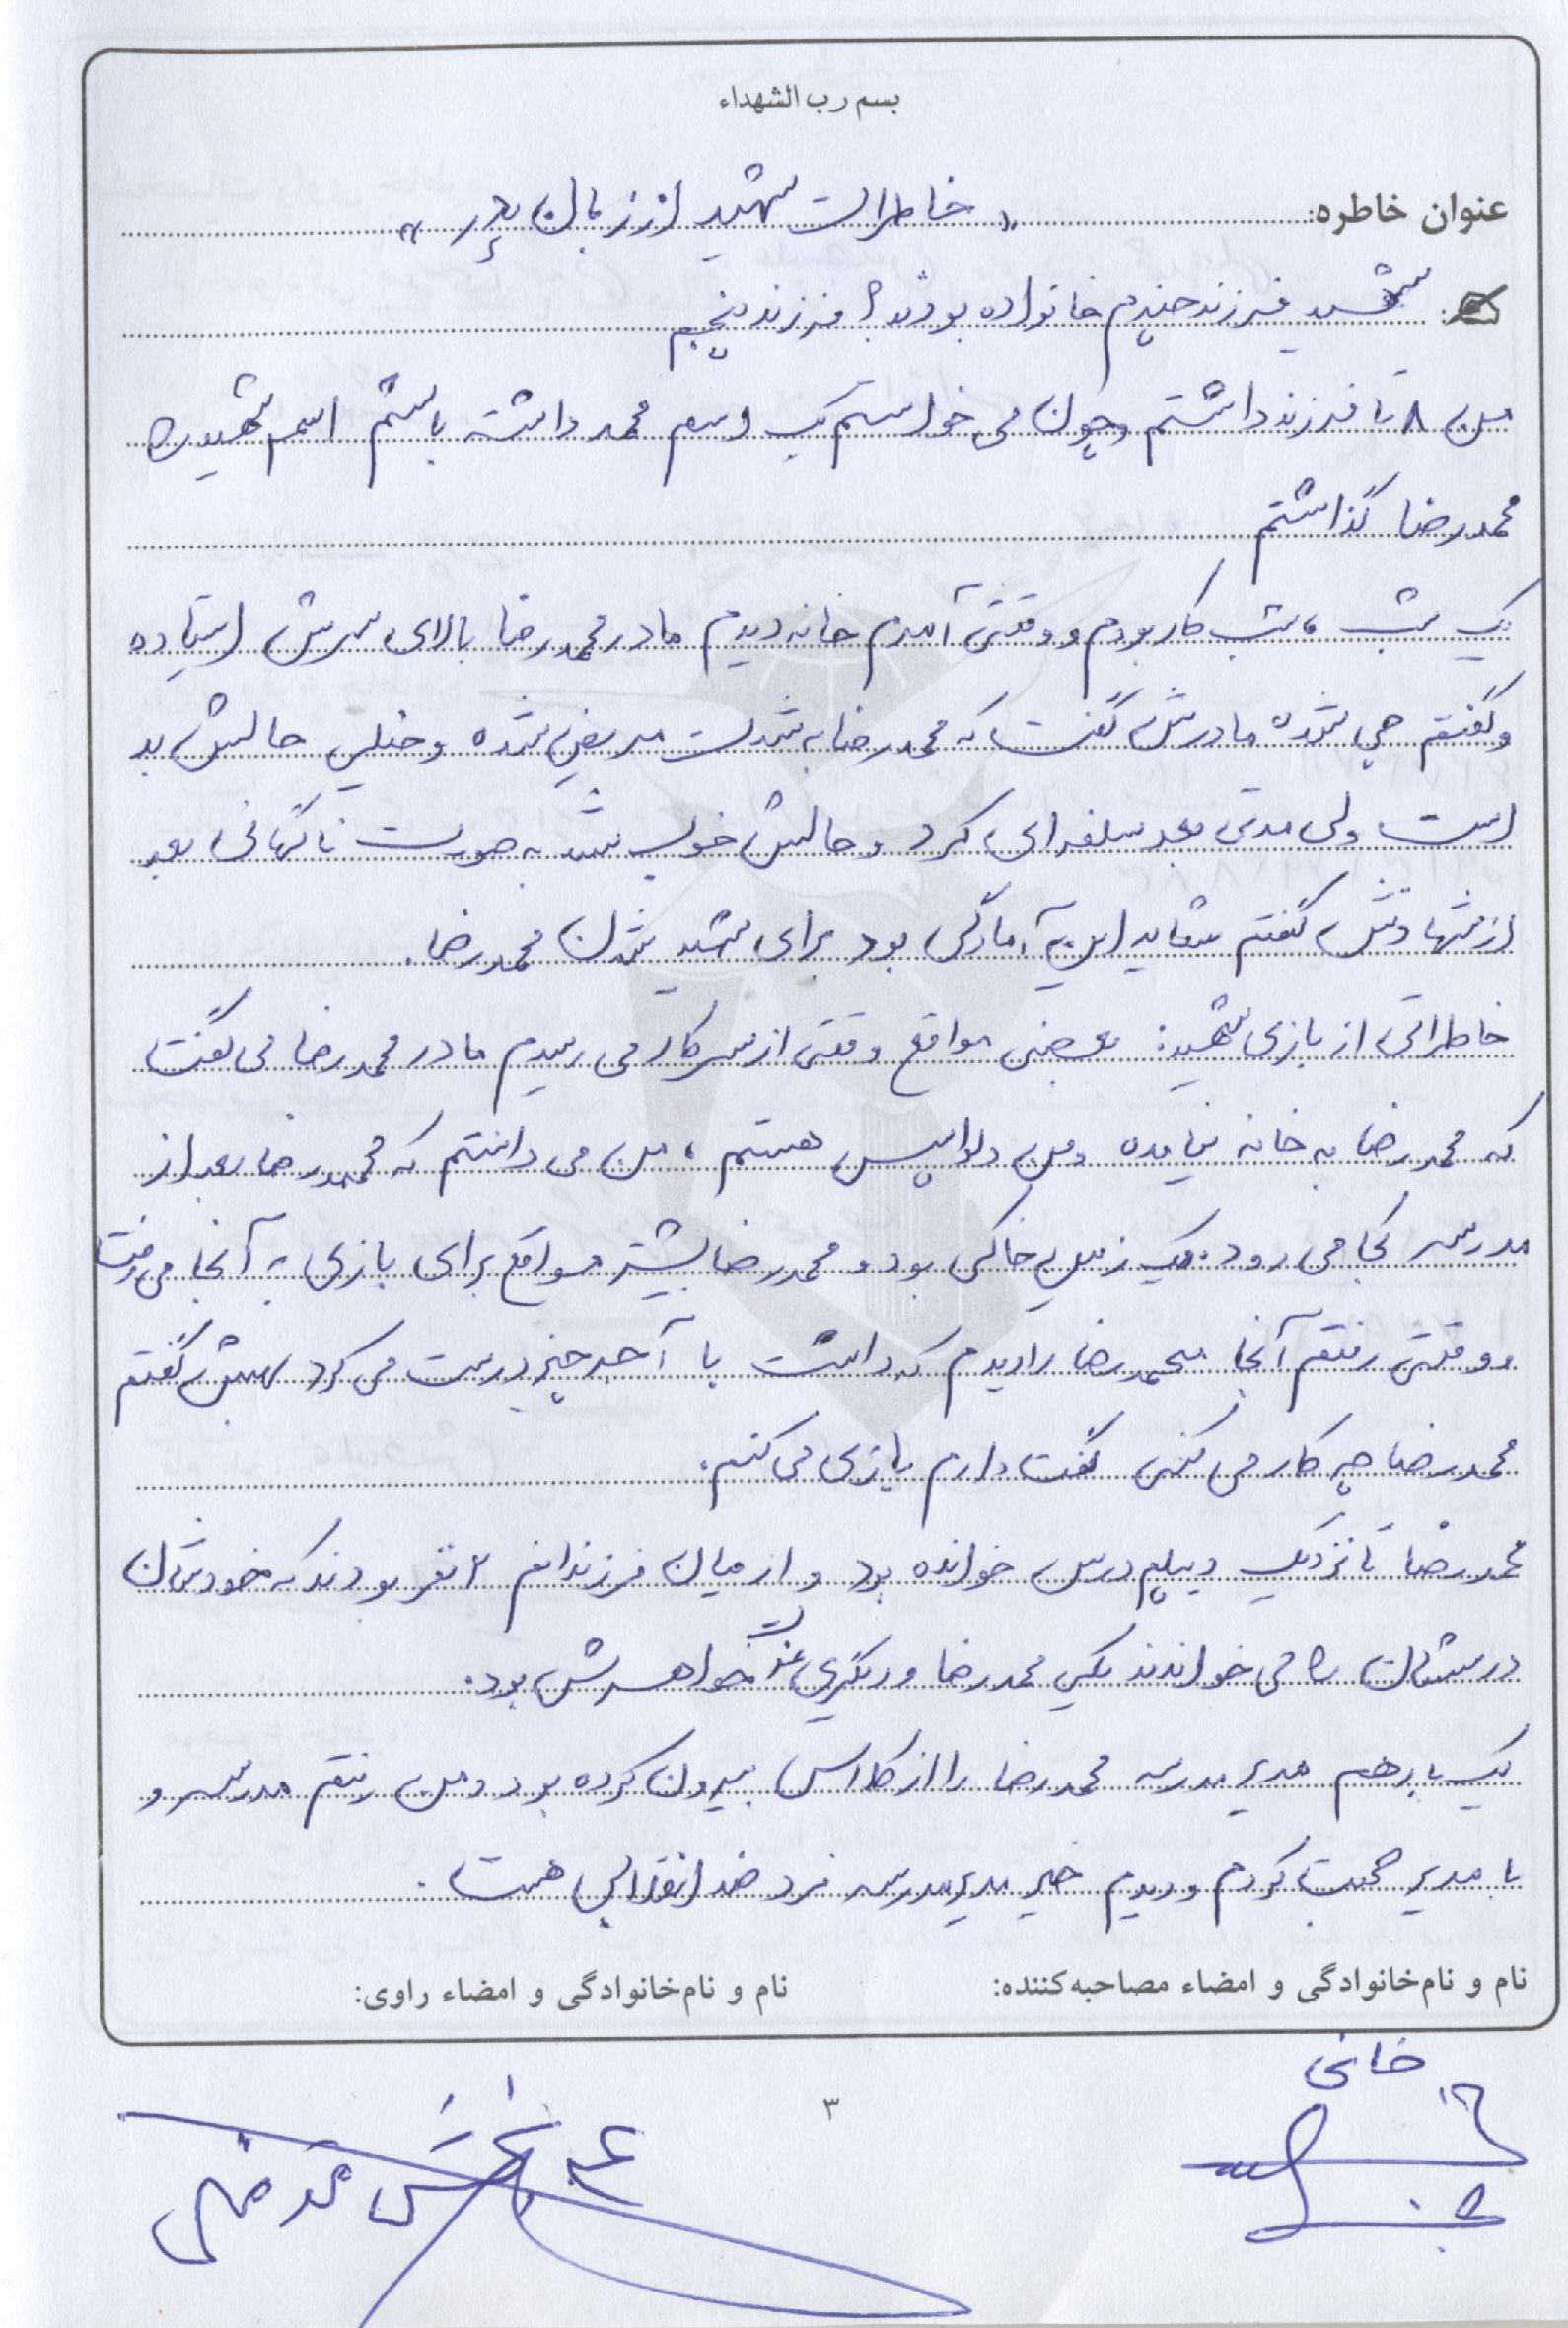 بسم رب الشهداء
عنوان خاطره: « خاطرات شهید از زبان پدر »
شهید فرزند چندم خانواده بودند؟ فرزند پنجم
من ۸ تا فرزند داشتم و چون می خواستم یک اسم محمد داشته باشم اسم شهید را
محمدرضا گذاشتم
یک شب ، شب کار بودم و وقتی آمدم خانه دیدم مادر محمدرضا بالای سرش ایستاده
و گفتم چی شده مادرش گفت که محمدرضا به شدت مریض شده و خیلی حالش بد
است ولی مدتی بعد سلفه ای کرد و حالش خوب شد به صورت ناگهانی بعد
از شهادتش گفتم شاید این آمادگی بود برای شهید شدن محمدرضا.
خاطراتی از بازی شهید: بعضی مواقع وقتی از سرکار می رسیدم مادر محمدرضا می گفت
که محمدرضا به خانه نیامده و من دلواپس هستم ، من می دانستم که محمدرضا بعد از
مدرسه کجا می رود. یک زمین خاکی بود و محمدرضا بیشتر مواقع برای بازی به آنجا می رفت
و وقتی رفتم آنجا محمدرضا را دیدم که داشت با آجر چیز درست می کرد بهش گفتم
محمدرضا چه کار می کنی گفت دارم بازی می کنم.
محمدرضا تا نزدیک دیپلم درس خوانده بود و از میان فرزندانم ۲ نفر بودند که خودشان
درسشان را می خواندند یکی محمدرضا و دیگری خواهرش بود.
یک بار هم مدیر مدرسه محمدرضا را از کلاس بیرون کرده بود و من رفتم مدرسه و
با مدیر صحبت کردم و دیدم خیر مدیر مدرسه فرد ضد انقلابی هست .
نام و نام‌خانوادگی و امضاء مصاحبه‌کننده:
نام و نام‌خانوادگی و امضاء راوی:
خانی
۳